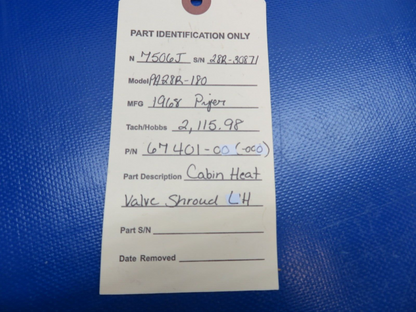 PART IDENTIFICATION ONLY
N 7506J S/N 28R-30871
Model PA28R-180
MFG 1968 Piper
Tach/Hobbs 2,115.98
P/N 67401-00 (-000)
Part Description Cabin Heat
Valve Shroud LH
Part S/N
Date Removed